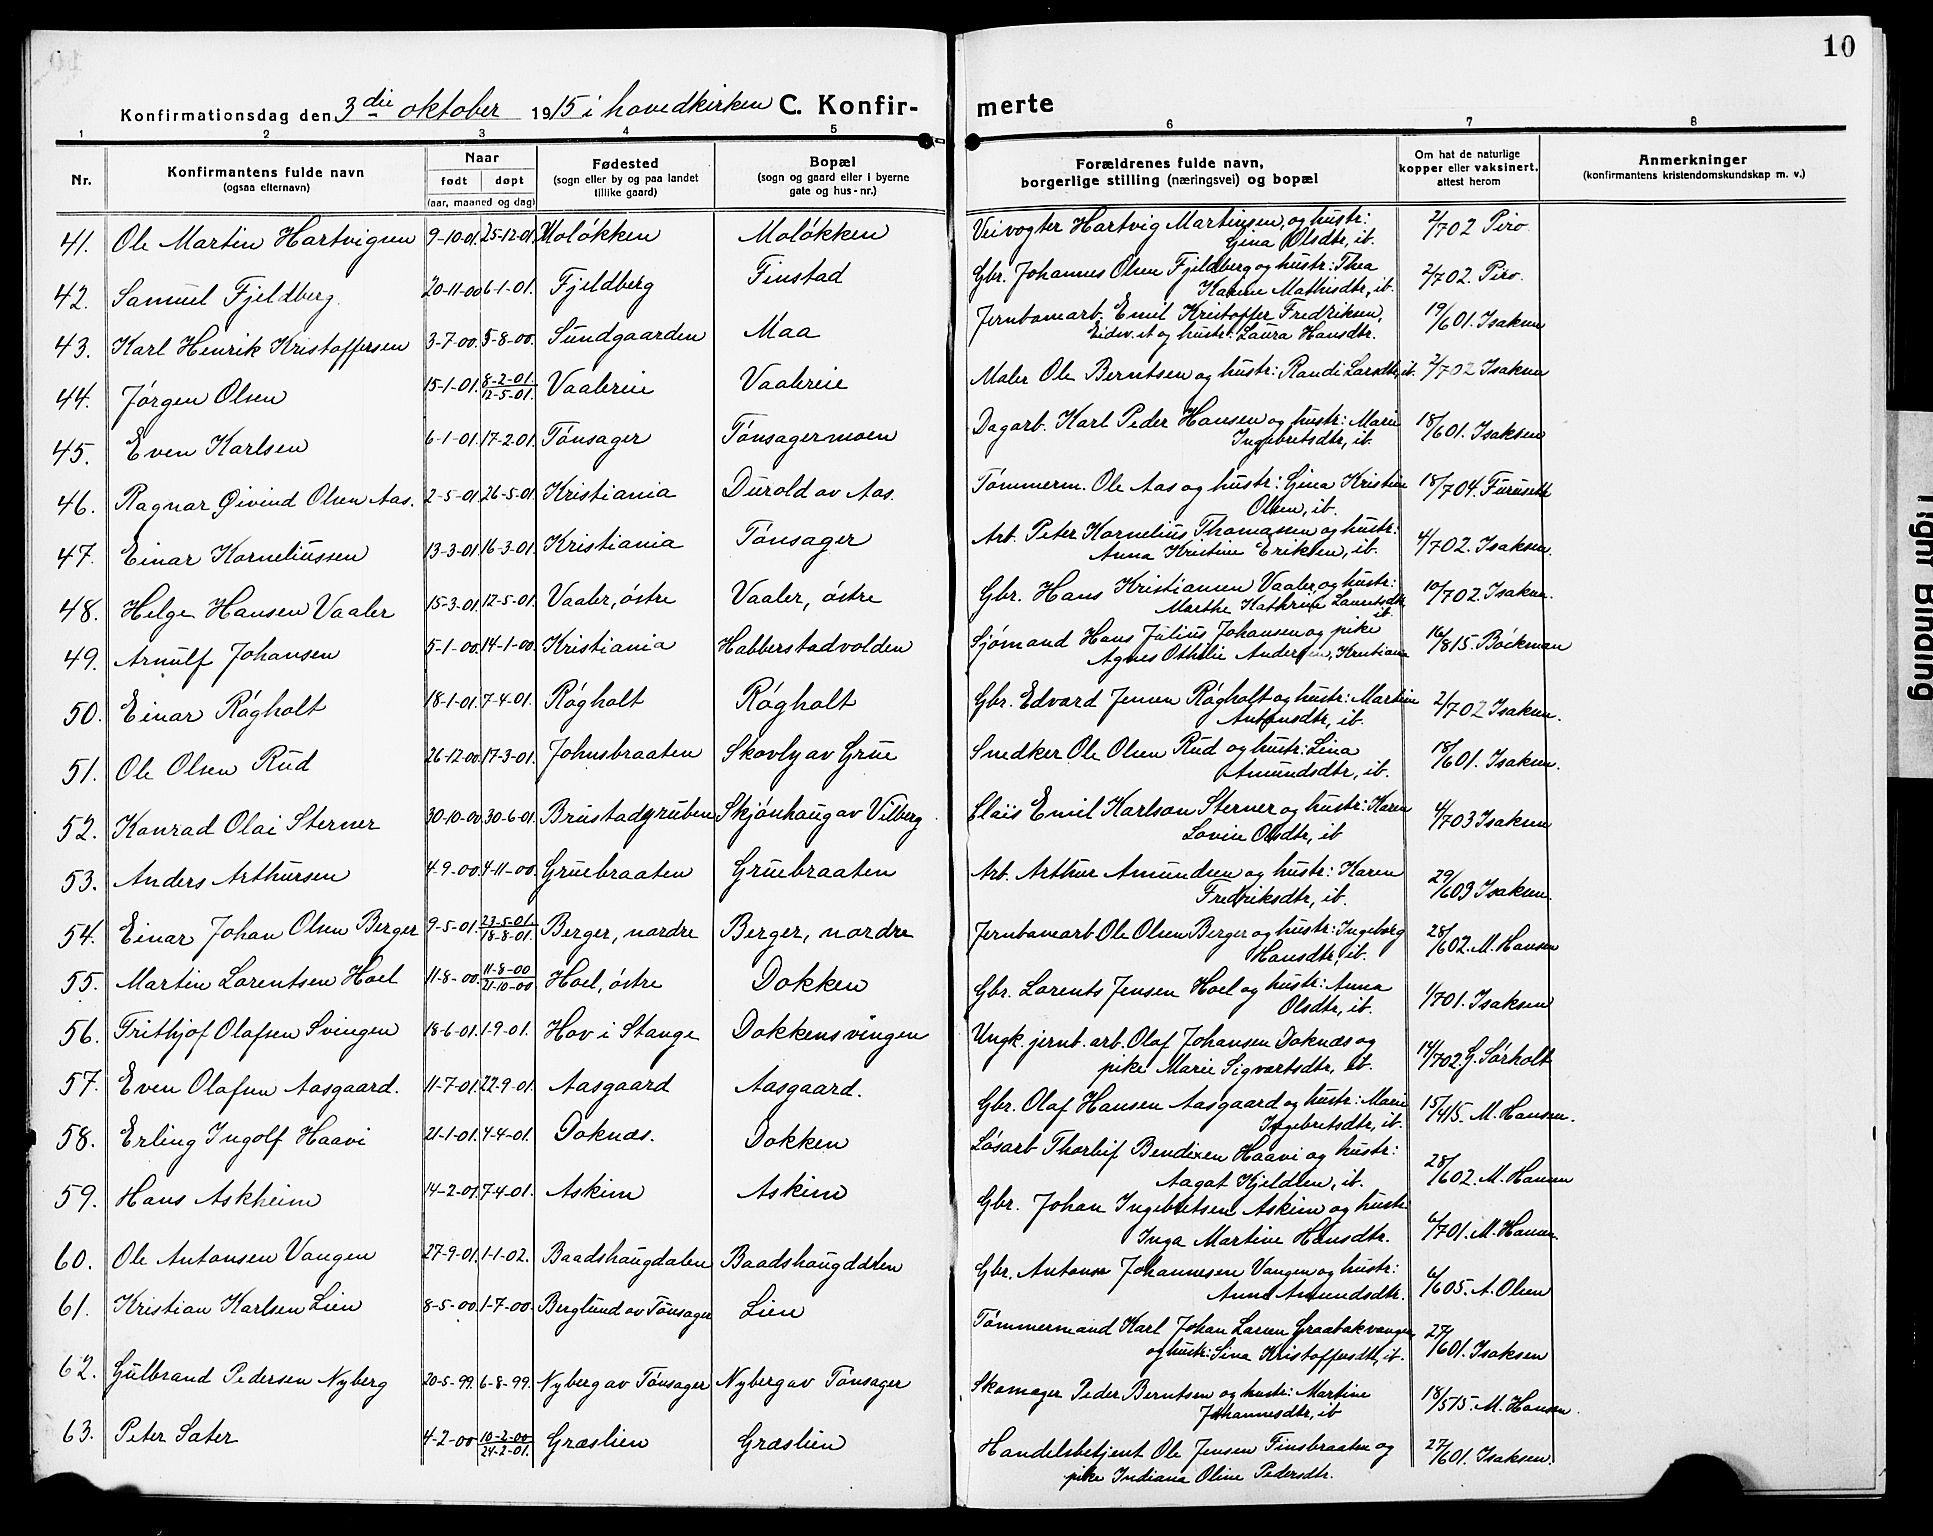 10
Konfirmationsdag den 3die oktober 1915 i hovedkirken C. Konfirmerte
1 2 3 4 5 6 7 8
Nr.
Konfirmantens fulde navn
(ogsaa efternavn)
Naar
født døpt
(aar, maaned og dag)
Fødested
(sogn eller by og paa landet
tillike gaard)
Bopæl
(sogn og gaard eller i byerne
gate og hus-nr.)
Forældrenes fulde navn,
borgerlige stilling (næringsvei) og bopæl
Om hat de naturlige
kopper eller vaksinert.
attest herom
Anmerkninger
(konfirmantens kristendomskundskap m. v.)
41. Ole Martin Hartvigsen 9-10-01. 25-12-01. Moløkken Moløkken Veivogter Hartvig Martinsen, og hustr: 2/702 Piro.
Gina Olsdtr, ib.
42. Samuel Fjeldberg. 20-11-00 6-1-01. Fjeldberg Finstad Gbr. Johannes Olsen Fjeldberg og hustr: Thea 2/702. Piro.
Karine Mathisdtr, ib.
43. Karl Henrik Kristoffersen 3-7-00. 5-8-00. Sundgaarden Maa Jernbanearb. Emil Kristoffer Fredriksen, 19/601. Isaksen
Eidsv. st og hustr. Laura Hansdtr.
44. Jørgen Olsen 15-1-01. 8-2-01. 12-5-01. Vaalereie Vaalereie Maler Ole Berntsen og hustr: Randi Larsdtr, ib. 2/702 Isaksen
45. Even Karlsen 6-1-01. 17-2-01. Tønsager Tønsagermoen Dagarb. Karl Peder Hansen og hustr: Marie 18/601. Isaksen
Ingebretsdtr, ib.
46. Ragnar Øivind Olsen Aas. 2-5-01. 26-5-01. Kristiania Durold av Aas. Tømmerm. Ole Aas og hustr: Gina Kristine 18/704. Furuseth
Olsen, ib.
47. Einar Korneliussen 13-3-01. 16-3-01. Kristiania Tønsager Arb. Peter Kornelius Thomassen og hustr: 4/702. Isaksen.
Anna Kristine Eriksen, ib.
48. Helge Hansen Vaaler 15-3-01. 12-5-01. Vaaler, østre Vaaler, østre Gbr. Hans Kristiansen Vaaler, og hustr: 10/702. Isaksen.
Marthe Kathrine Lauritsdtr, ib.
49. Arnulf Johansen 5-1-00. 14-1-00. Kristiania Habberstadvolden Sjømand Hans Julius Johansen og pike 16/815. Bøckman
Agnes Othilie Andersen, Kristiania
50. Einar Røgholt 18-1-01. 7-4-01. Røgholt Røgholt Gbr. Edvard Jensen Røgholt og hustr: Martine 2/702 Isaksen.
Antonsdtr, ib.
51. Ole Olsen Rud 26-12-00. 17-3-01. Johnsbraaten Skovly av Grue Snedker Ole Olsen Rud og hustr: Lina 18/601. Isaksen.
Amundsdtr, ib.
52. Konrad Olai Sterner 30-10-00. 30-6-01. Brustadgruben Skjønhaug av Vilberg Emil Karlson Sterner og hustr: Karen 4/703 Isaksen
Lovise Olsdtr, ib
53. Anders Arthursen 4-9-00. 4-11-00. Gruebraaten Gruebraaten Arb. Arthur Amundsen og hustr: Karen 29/603 Isaksen.
Fredriksdtr, ib.
54. Einar Johan Olsen Berger 9-5-01. 23-5-01. 18-8-01. Berger, nordre Berger, nordre Jernbanearb Ole Olsen Berger og hustr: Ingeborg 28/602. M. Hansen
Hansdtr, ib.
55. Martin Lorentsen Hoel 11-8-00. 11-8-00 21-10-00 Hoel, østre Dokken Gbr. Lorents Jensen Hoel og hustr: Anna 1/701. Isaksen
Olsdtr, ib.
56. Frithjof Olafsen Svingen 18-6-01. 1-9-01. Hov i Stange Dokkensvingen Ungk. jernb. arb. Olaf Johansen Doknæs og 14/702. G. Sørholt
pike Marie Sigvartsdtr, ib.
57. Even Olafsen Aasgaard. 11-7-01. 22-9-01. Aasgaard Aasgaard. Gbr. Olaf Hansen Aasgaard og hustr: Marie 15/415. M. Hansen.
Ingebretsdtr, ib.
58. Erling Ingolf Haavi 21-1-01. 4-4-01. Doknæs. Dokken Løsarb Thorleif Bendixen Haavi og hustr: 28/602. M. Hansen
Aagot Kjeldsen, ib.
59. Hans Askheim 14-2-01. 7-4-01. Askim Askim Gbr. Johan Ingebretsen Askim og hustr 6/701. M. Hansen
Inga Martine Hansdtr.
60. Ole Antonsen Vangen 27-9-01. 1-1-02. Baadshaugdalen Baadshaugdalen Gbr. Anton Johannesen Vangen og hustr: 6/605. A. Olsen
Anne Amundsdtr.
61. Kristian Karlsen Lien 8-5-00. 1-7-00. Berglund av Tønsager Lien Tømmermand Karl Johan Larsen Graabakvangen 27/601. Isaksen
og hustr: Sina Kristoffersdtr, ib.
62. Gulbrand Pedersen Nyberg 20-5-99. 6-8-99. Nyberg av Tønsager Nyberg av Tønsager Skomager Peder Berntsen og hustr: Martine 18/515. M. Hansen.
Johannesdtr, ib
63. Peter Sater 4-2-00 10-2-00 24-2-01. Græslien Græslien Handelsbetjent Ole Jensen Finsbraaten og 27/601. Isaksen.
pike Indiana Oline Pedersdtr.
Tight Binding